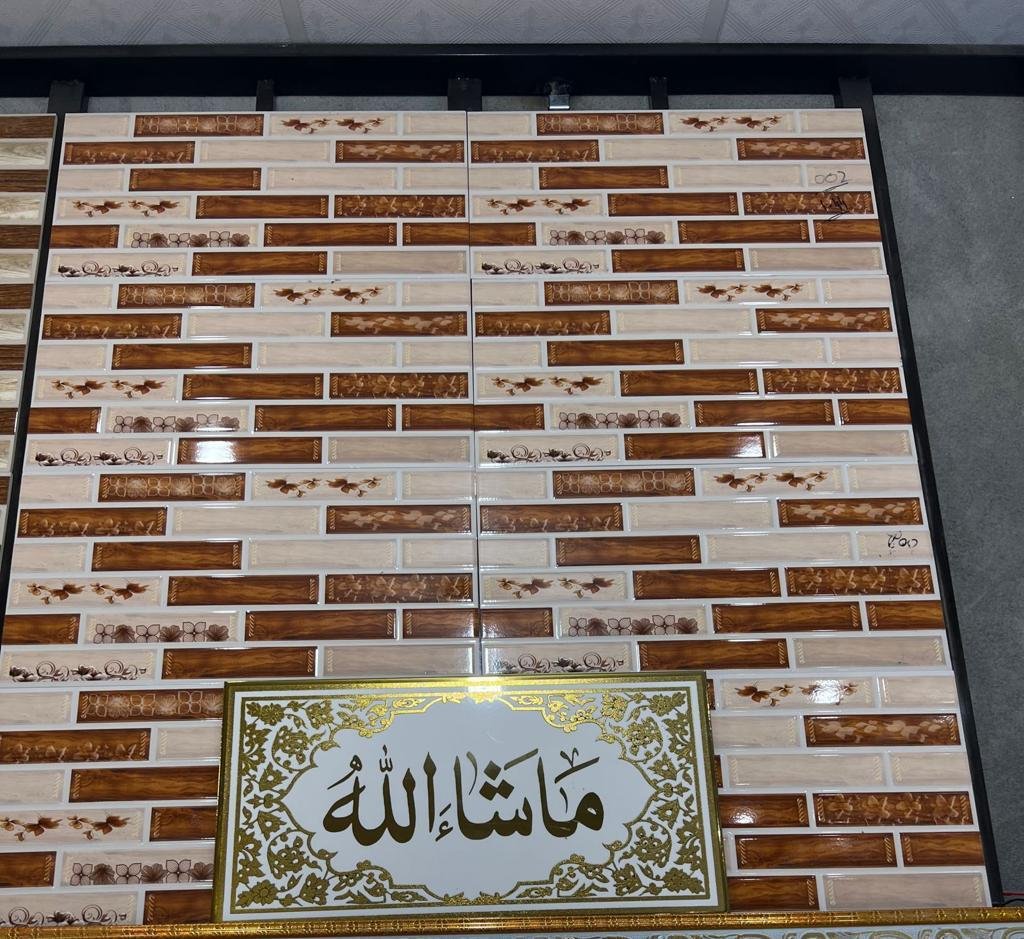 002
مَاشَاءَاللّٰهُ